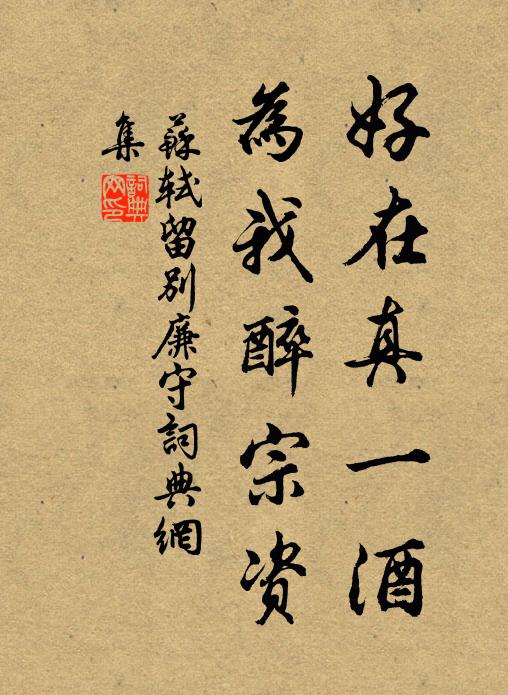 好在真一酒
為我醉宗資
蘇軾留別廉守詞典網
集
詞典網印